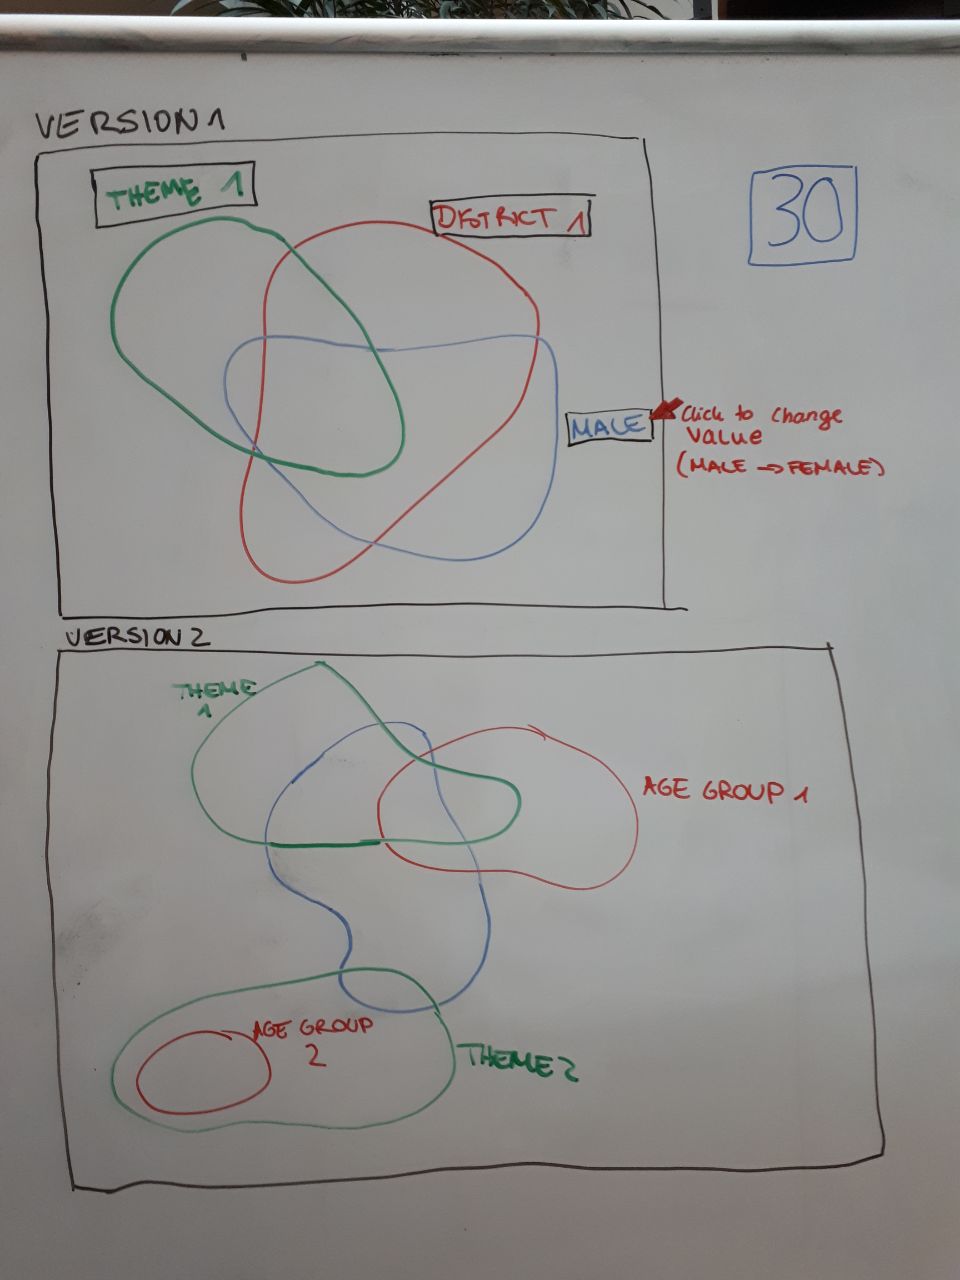 VERSION 1
THEME 1
DISTRICT 1
30
MALE
Click to change
value
(MALE → FEMALE)
VERSION 2
THEME
1
AGE GROUP 1
AGE GROUP
2
THEME 2